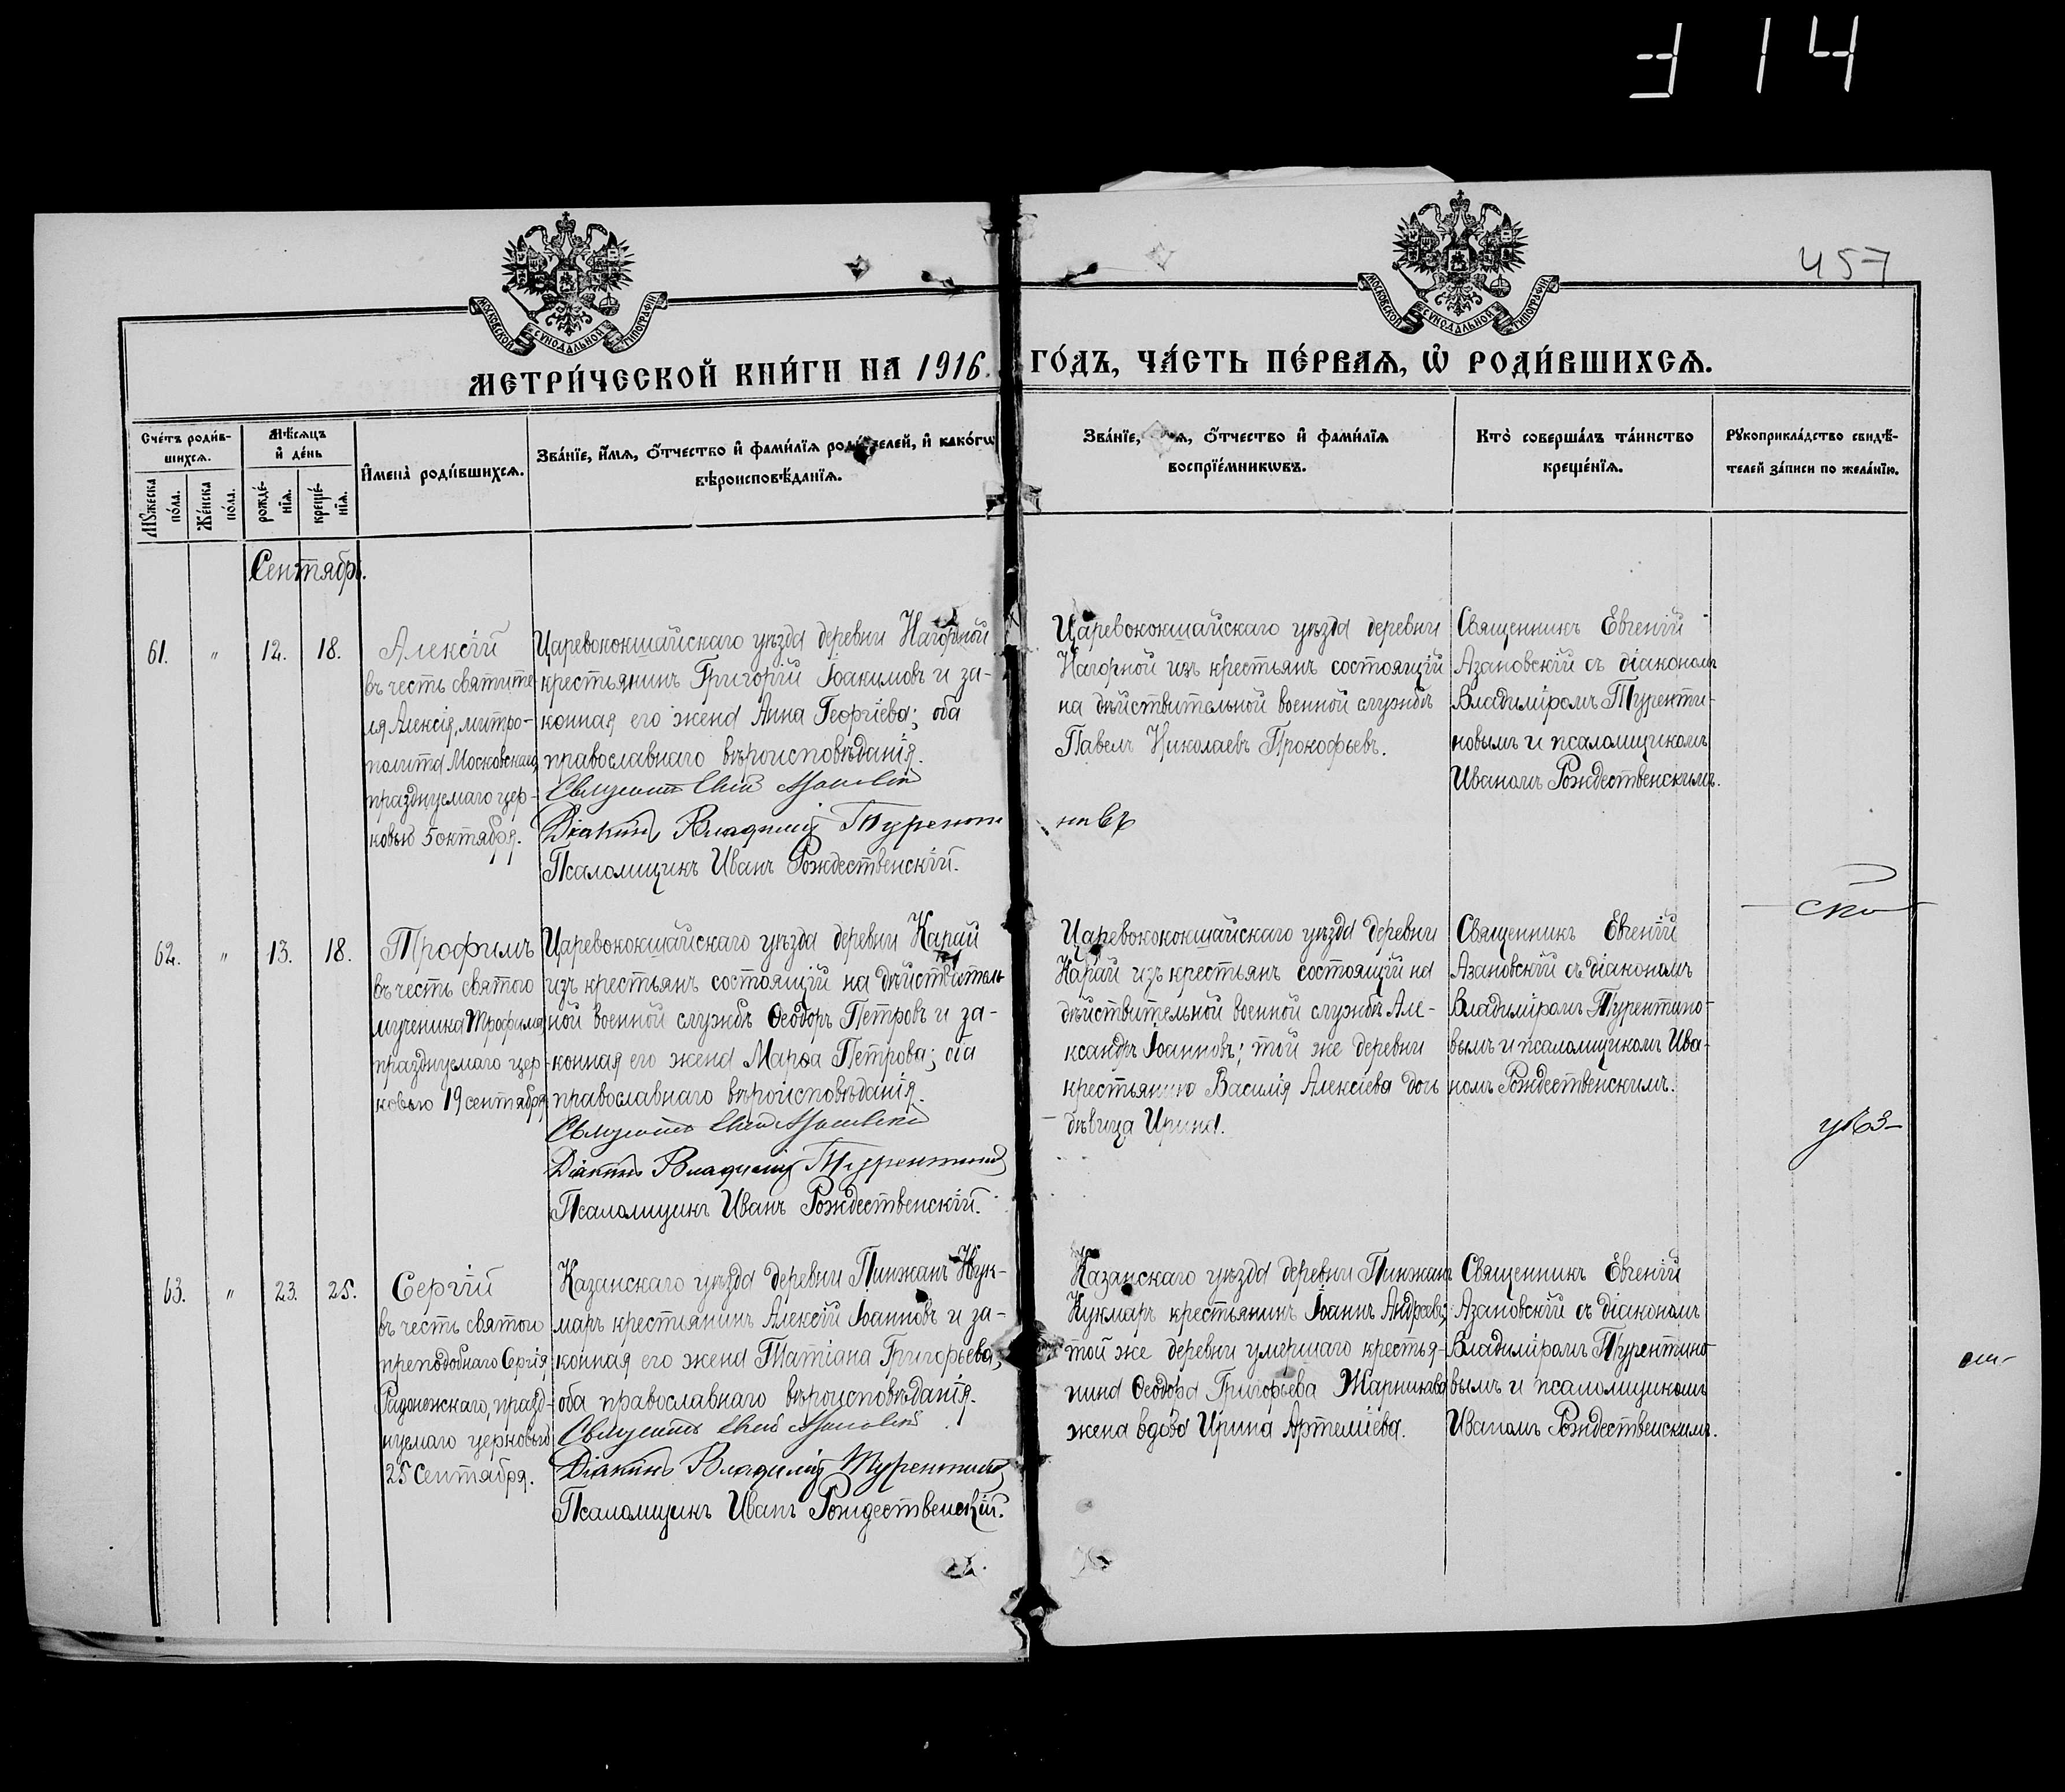 314
457
МОСКОВСКОЙ СѴНОДАЛЬНОЙ ТИПОГРАФІИ
МОСКОВСКОЙ СѴНОДАЛЬНОЙ ТИПОГРАФІИ
МЕТРИ́ЧЕСКОЙ КНИ́ГИ НА 1916. ГО́ДЪ, ЧА́СТЬ ПЕ́РВАѦ, Ѡ҆ РОДИ́ВШИХСѦ.
Сче́тъ роди́в-
шихсѧ.
Мꙋ́жеска
по́ла.
Же́нска
по́ла.
Мѣ́сѧцъ
и҆ де́нь
рожде́-
нїѧ.
креще́-
нїѧ.
И҆мена̀ роди́вшихсѧ.
Зва́нїе, и҆́мѧ, ѻ҆́тчество и҆ фами́лїѧ роди́телей, и҆ како́гѡ
вѣроисповѣ́данїѧ.
Зва́нїе, и҆́мѧ, ѻ҆́тчество и҆ фами́лїѧ
воспрїе́мникѡвъ.
Кто̀ соверша́лъ та́инство
креще́нїѧ.
Рꙋкоприкла́дство свидѣ́-
телей за́писи по жела́нїю.
Сентябрь.
61.
"
12.
18.
Алексій
въ честь святите
ля Алексія, митро-
полита Московскаго,
празднуемаго цер-
ковью 5 октября.
Царевококшайскаго уѣзда деревни Нагорной
крестьянинъ Григорій Іоакимовъ и за-
конная его жена Анна Георгіева; оба
православнаго вѣроисповѣданія.
Діаконъ Владиміръ Турентиновъ
Псаломщикъ Иванъ Рождественскій.
Царевококшайскаго уѣзда деревни
Нагорной изъ крестьянъ состоящій
на дѣйствительной военной службѣ
Павелъ Николаевъ Прокофьевъ.
Священникъ Евгеній
Азановскій съ діакономъ
Владиміромъ Туренти-
новымъ и псаломщикомъ
Иваномъ Рождественскимъ.
62.
"
13.
18.
Трофимъ
въ честь святого
мученика Трофима,
празднуемаго цер-
ковью 19 сентября
Царевококшайскаго уѣзда деревни Карай
изъ крестьянъ состоящій на дѣйствитель
ной военной службѣ Ѳеодоръ Петровъ и за-
конная его жена Марѳа Петрова; оба
православнаго вѣроисповѣданія.
Діаконъ Владиміръ Турентиновъ
Псаломщикъ Иванъ Рождественскій.
Царевокококшайскаго уѣзда деревни
Карай изъ крестьянъ состоящій на
дѣйствительной военной службѣ Але-
ксандръ Іоанновъ; той же деревни
крестьянина Василія Алексіева дочь
дѣвица Ирина.
Священникъ Евгеній
Азановскій съ діакономъ
Владиміромъ Турентино-
вымъ и псаломщикомъ Ива-
номъ Рождественскимъ.
63.
"
23.
25.
Сергій
въ честь святого
преподобнаго Сергія
Радонежскаго, празд-
нуемаго церковью
25 сентября.
Казанскаго уѣзда деревни Пинжанъ Кук-
маръ крестьянинъ Алексій Іоанновъ и за-
конная его жена Татіана Григорьева,
оба православнаго вѣроисповѣданія.
Діаконъ Владиміръ Турентиновъ
Псаломщикъ Иванъ Рождественскій.
Казанскаго уѣзда деревни Пинжанъ
Кукмаръ крестьянинъ Іоаннъ Андреевъ;
той же деревни умершаго крестья-
нина Ѳеодора Григорьева Жарникова
жена вдова Ирина Артеміева.
Священникъ Евгеній
Азановскій съ діакономъ
Владиміромъ Турентино-
вымъ и псаломщикомъ
Иваномъ Рождественскимъ.